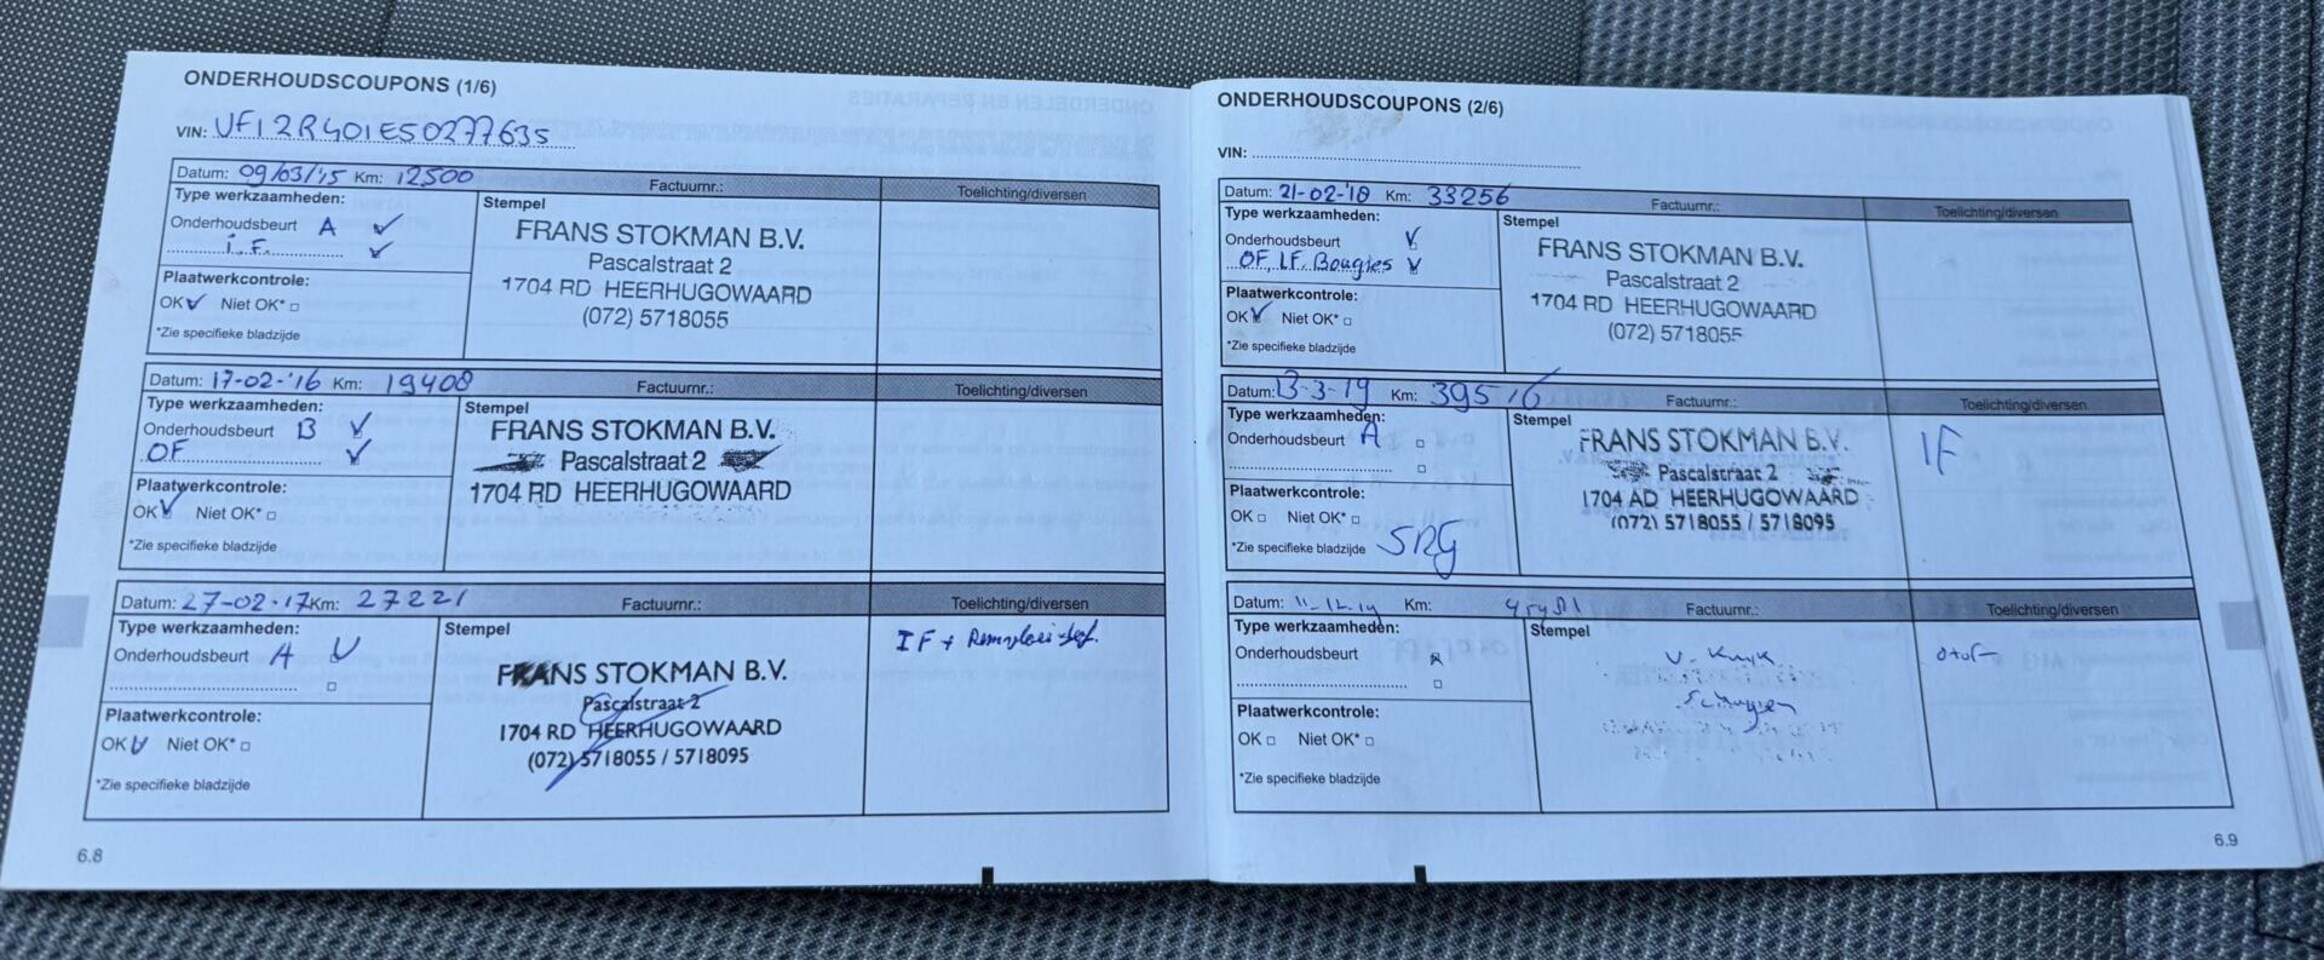 ONDERHOUDSCOUPONS (1/6)
VIN: VF12R401E50277635
Datum: 09/03/'15 Km: 12500 Factuurnr.: Toelichting/diversen
Type werkzaamheden:
Onderhoudsbeurt A
i.F.
Plaatwerkcontrole:
OK Niet OK*
*Zie specifieke bladzijde
Stempel
FRANS STOKMAN B.V.
Pascalstraat 2
1704 RD HEERHUGOWAARD
(072) 5718055
Datum: 17-02-'16 Km: 19408 Factuurnr.: Toelichting/diversen
Type werkzaamheden:
Onderhoudsbeurt B
OF
Plaatwerkcontrole:
OK Niet OK*
*Zie specifieke bladzijde
Stempel
FRANS STOKMAN B.V.
Pascalstraat 2
1704 RD HEERHUGOWAARD
Datum: 27-02-17 Km: 27221 Factuurnr.: Toelichting/diversen
Type werkzaamheden:
Onderhoudsbeurt A
Plaatwerkcontrole:
OK Niet OK*
*Zie specifieke bladzijde
Stempel
FRANS STOKMAN B.V.
Pascalstraat 2
1704 RD HEERHUGOWAARD
(072) 5718055 / 5718095
IF +
6.8
ONDERHOUDSCOUPONS (2/6)
VIN:
Datum: 21-02-'18 Km: 33256 Factuurnr.: Toelichting/diversen
Type werkzaamheden:
Onderhoudsbeurt
OF, I.F. Bougies
Plaatwerkcontrole:
OK Niet OK*
*Zie specifieke bladzijde
Stempel
FRANS STOKMAN B.V.
Pascalstraat 2
1704 RD HEERHUGOWAARD
(072) 5718055
Datum: 13-3-19 Km: 39516 Factuurnr.: Toelichting/diversen
Type werkzaamheden:
Onderhoudsbeurt A
Plaatwerkcontrole:
OK Niet OK*
*Zie specifieke bladzijde
Stempel
FRANS STOKMAN B.V.
Pascalstraat 2
1704 AD HEERHUGOWAARD
(072) 5718055 / 5718095
IF
Datum: 11-12-19 Km: Factuurnr.: Toelichting/diversen
Type werkzaamheden:
Onderhoudsbeurt
Plaatwerkcontrole:
OK Niet OK*
*Zie specifieke bladzijde
Stempel
V. Kuyk
Schagen
6.9